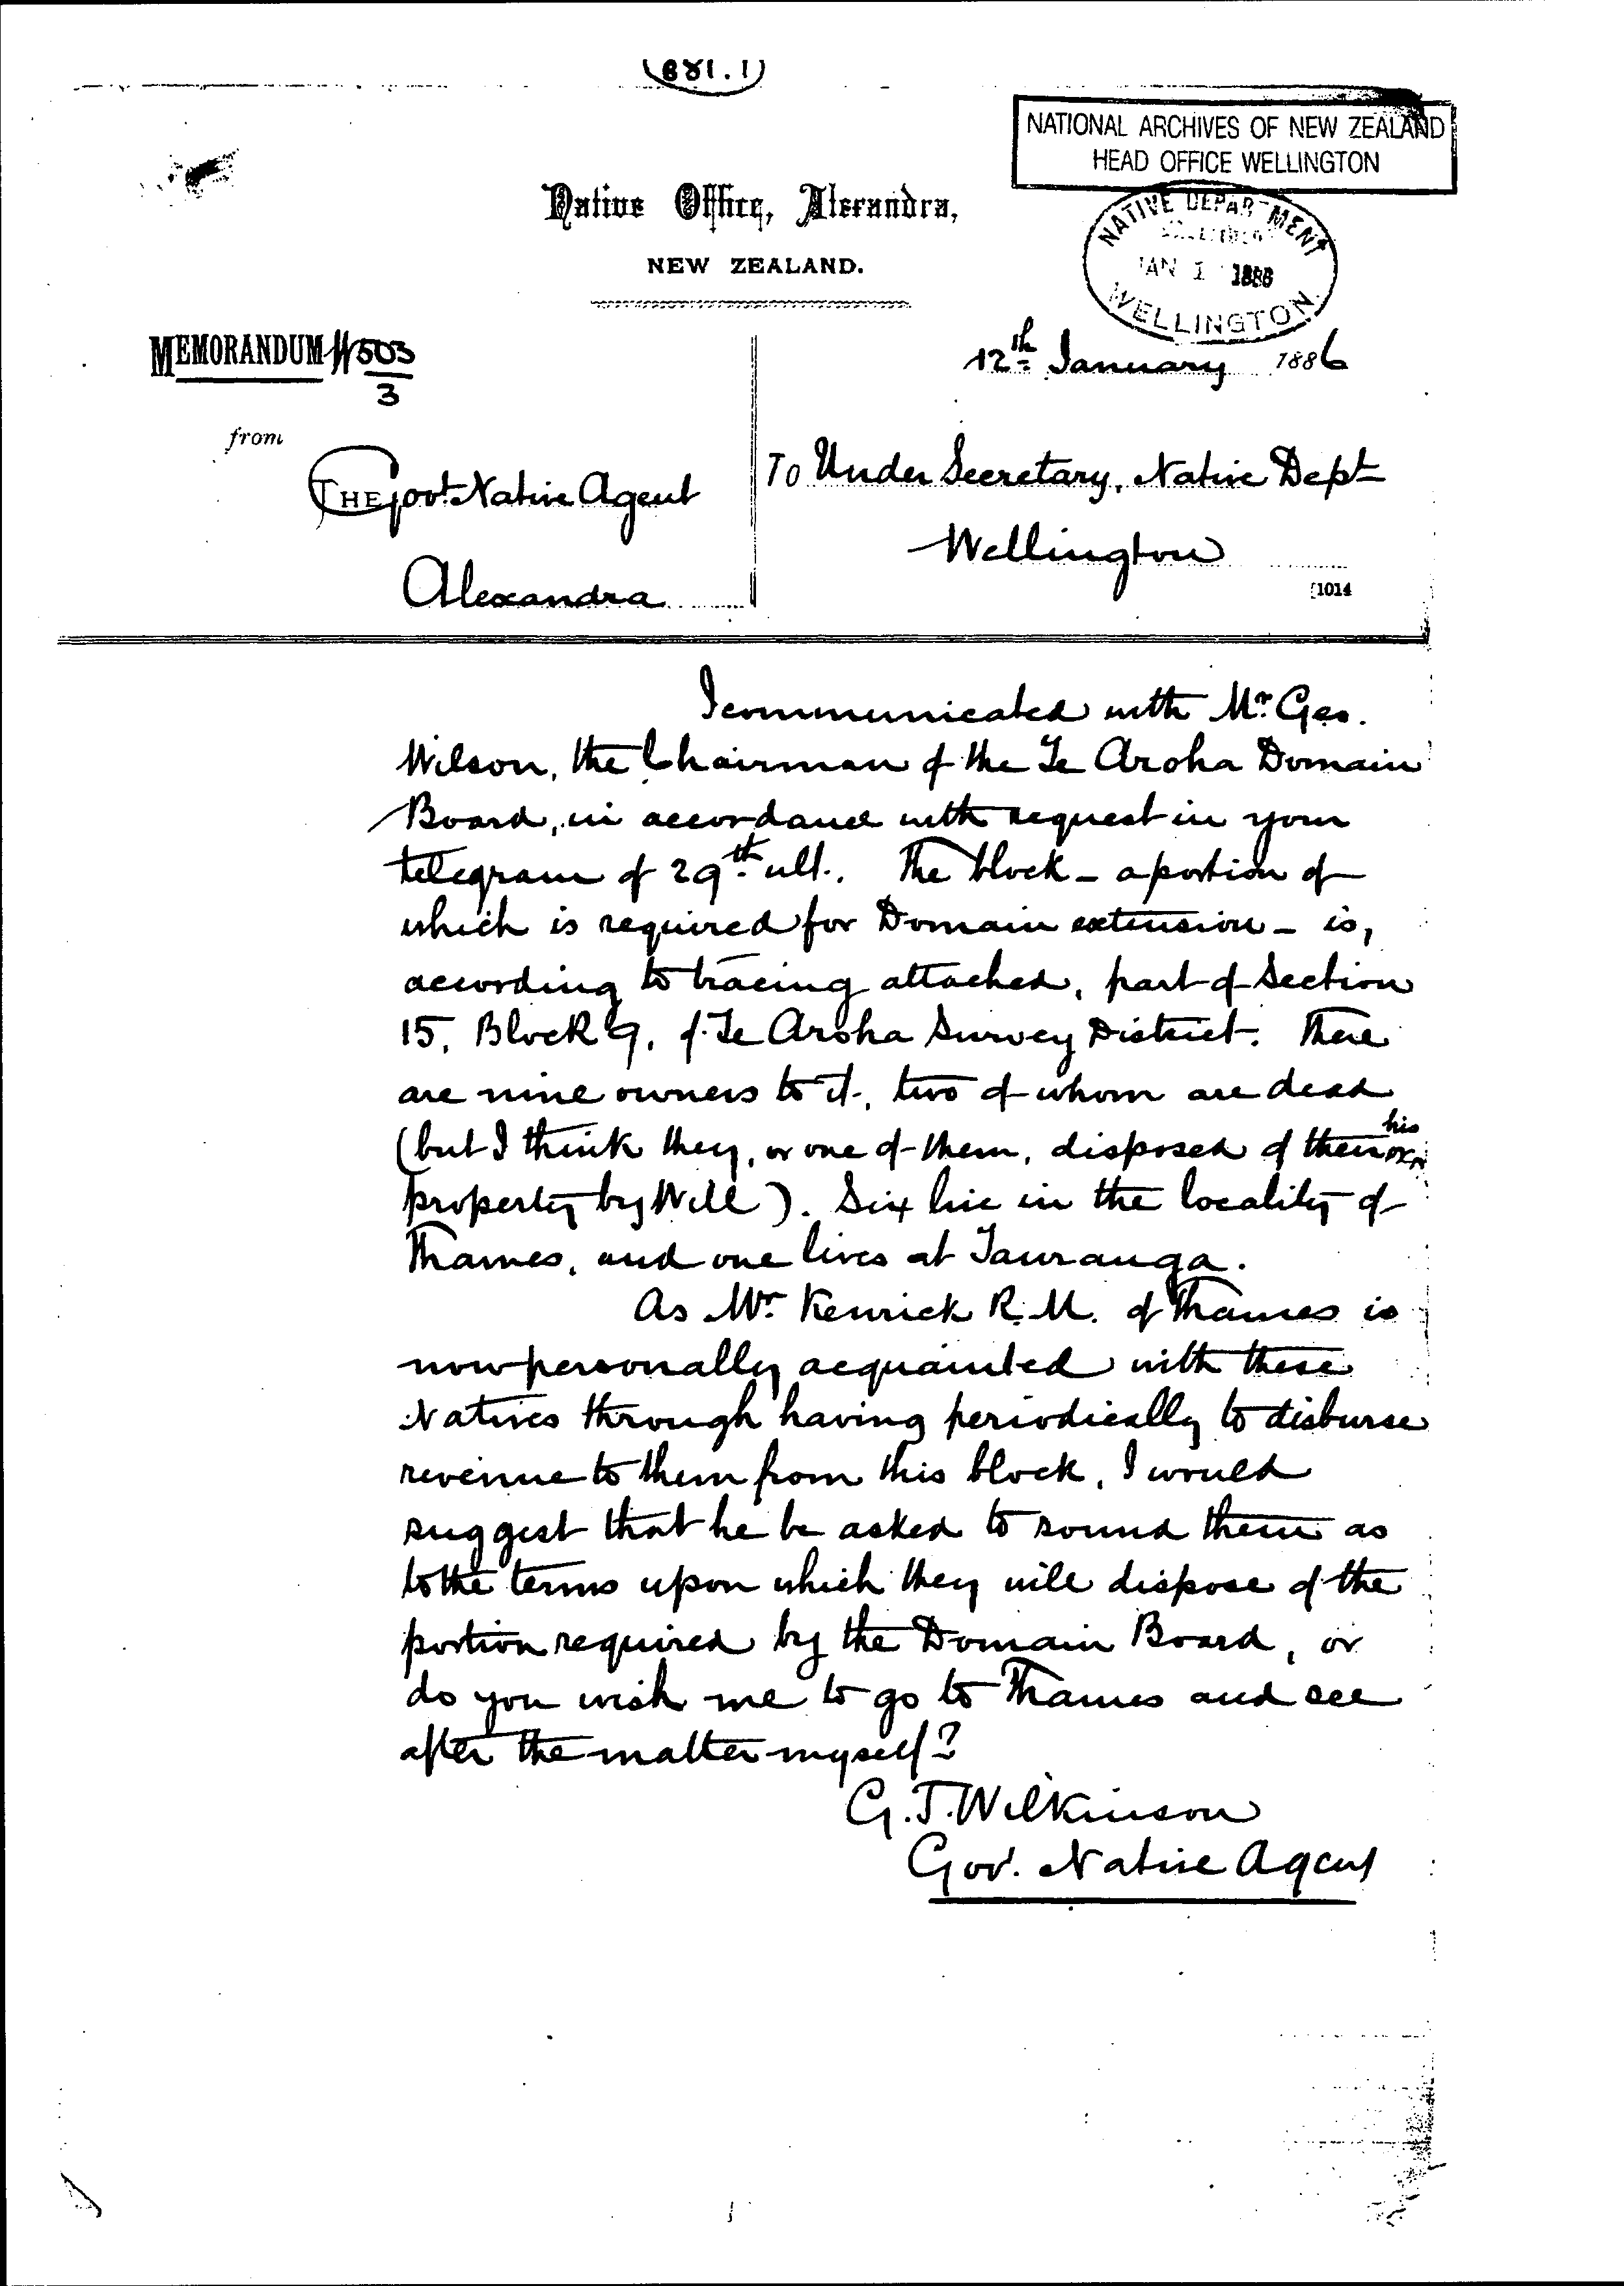 (881.1)
NATIONAL ARCHIVES OF NEW ZEALAND
HEAD OFFICE WELLINGTON
Native Office, Alexandra,
NEW ZEALAND.
NATIVE DEPARTMENT
JAN 1 1886
WELLINGTON
MEMORANDUM 503
3
12th January 1886
from
THE Govt. Native Agent
Alexandra
To Under Secretary, Native Dept
Wellington
1014
I communicated with Mr. Geo.
Wilson, the Chairman of the Te Aroha Domain
Board, in accordance with request in your
telegram of 29th ult. The block - a portion of
which is required for Domain extension - is,
according to tracing attached, part of Section
15, Block 9, of Te Aroha Survey District. There
are nine owners to it, two of whom are dead
(but I think they, or one of them, disposed of their or his
property by Will). Six live in the locality of
Thames, and one lives at Tauranga.
As Mr. Kenrick R.M. of Thames is
now personally acquainted with these
Natives through having periodically to disburse
revenue to them from this block, I would
suggest that he be asked to sound them as
to the terms upon which they will dispose of the
portion required by the Domain Board, or
do you wish me to go to Thames and see
after the matter myself?
G.T. Wilkinson
Gov. Native Agent